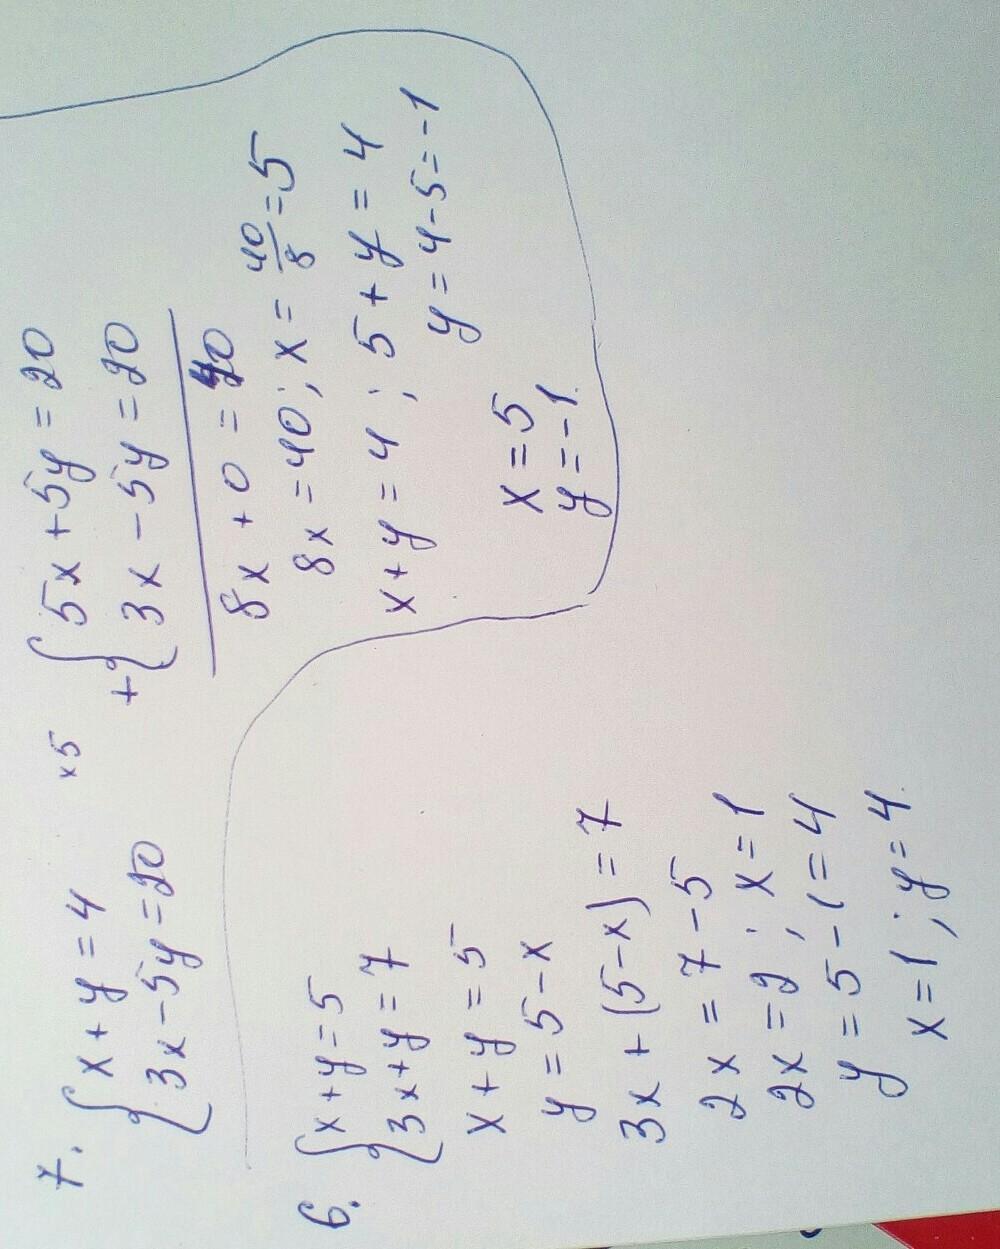 7. { x + y = 4 ×5
{ 3x - 5y = 20
{ 5x + 5y = 20
+ { 3x - 5y = 20
8x + 0 = 40
8x = 40; x = 40/8 = 5
x + y = 4; 5 + y = 4
y = 4 - 5 = -1
x = 5
y = -1
6. { x + y = 5
{ 3x + y = 7
x + y = 5
y = 5 - x
3x + (5 - x) = 7
2x = 7 - 5
2x = 2; x = 1
y = 5 - 1 = 4
x = 1; y = 4.